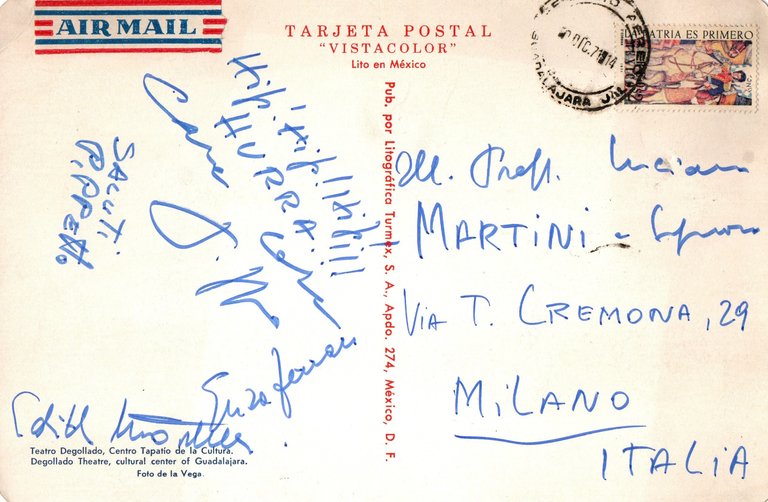 AIR MAIL
TARJETA POSTAL
"VISTACOLOR"
Lito en México
GUADALAJARA JAL.
LA PATRIA ES PRIMERO
Pub. por Litográfica Turmex, S. A., Apdo. 274, México, D. F.
Hip! Hip! Hip!!!
HURRA!
SALUTI
Enzo Ferrari
Edith
Ill. Prof. Luciano
MARTINI e Signora
VIA T. CREMONA, 29
MILANO
ITALIA
Teatro Degollado, Centro Tapatío de la Cultura.
Degollado Theatre, cultural center of Guadalajara.
Foto de la Vega.